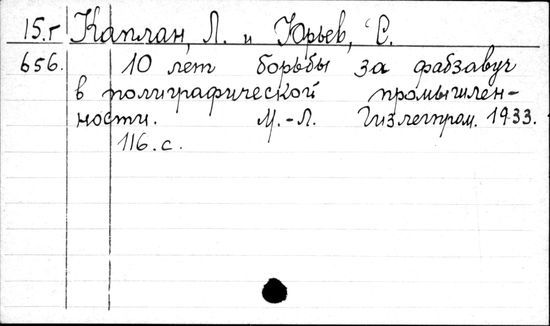 15.г Каплан, Л. и Юрьев, С.
656. 10 лет борьбы за фабзавуч
в полиграфической промышлен-
ности. М.-Л. Гизлегпром. 1933.
116.с.